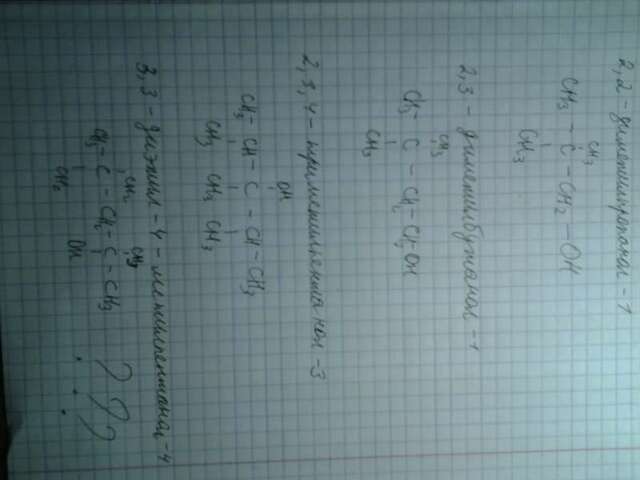 2,2 - диметилпропанол - 1
CH₃
CH₃ - C - CH₂ - OH
CH₃
2,3 - диметилбутанол - 1
CH₃
CH₃ C - CH - CH₂OH
CH₃
2,3,4 - триметилпентанол - 3
OH
CH₃ - CH - C - CH - CH₃
CH₃ CH₃ CH₃
3,3 - диэтил - 4 - метилпентанол - 4
CH₃ CH₃
CH₃ - C - CH₂ - C - CH₃
CH₃ OH
???